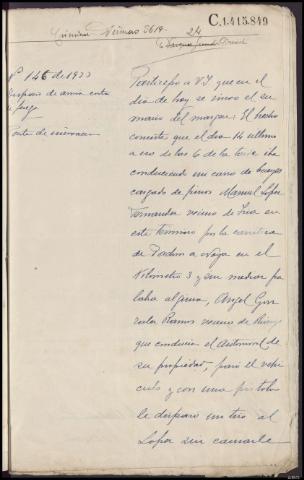 C.1.415.849
Número 3619 24
Nº 146 de 1933
Disparo de arma corta
de fuego
Participo a V.I. que en el
día de hoy se incoó el su
mario del margen: El hecho
consiste que el día 14 último
a eso de las 6 de la tarde iba
conduciendo un carro de bueyes
cargado de pinos Manuel López
Fernández vecino de
en
este término por la carretera
de Padrón a Noya en el
Kilómetro 3 y sin mediar pa
labra alguna, Angel Gon
zalez Ramos vecino de
que conducía el automóvil de
su propiedad, paró el vehi
culo y con una pistola
le disparó un tiro al
López sin causarle